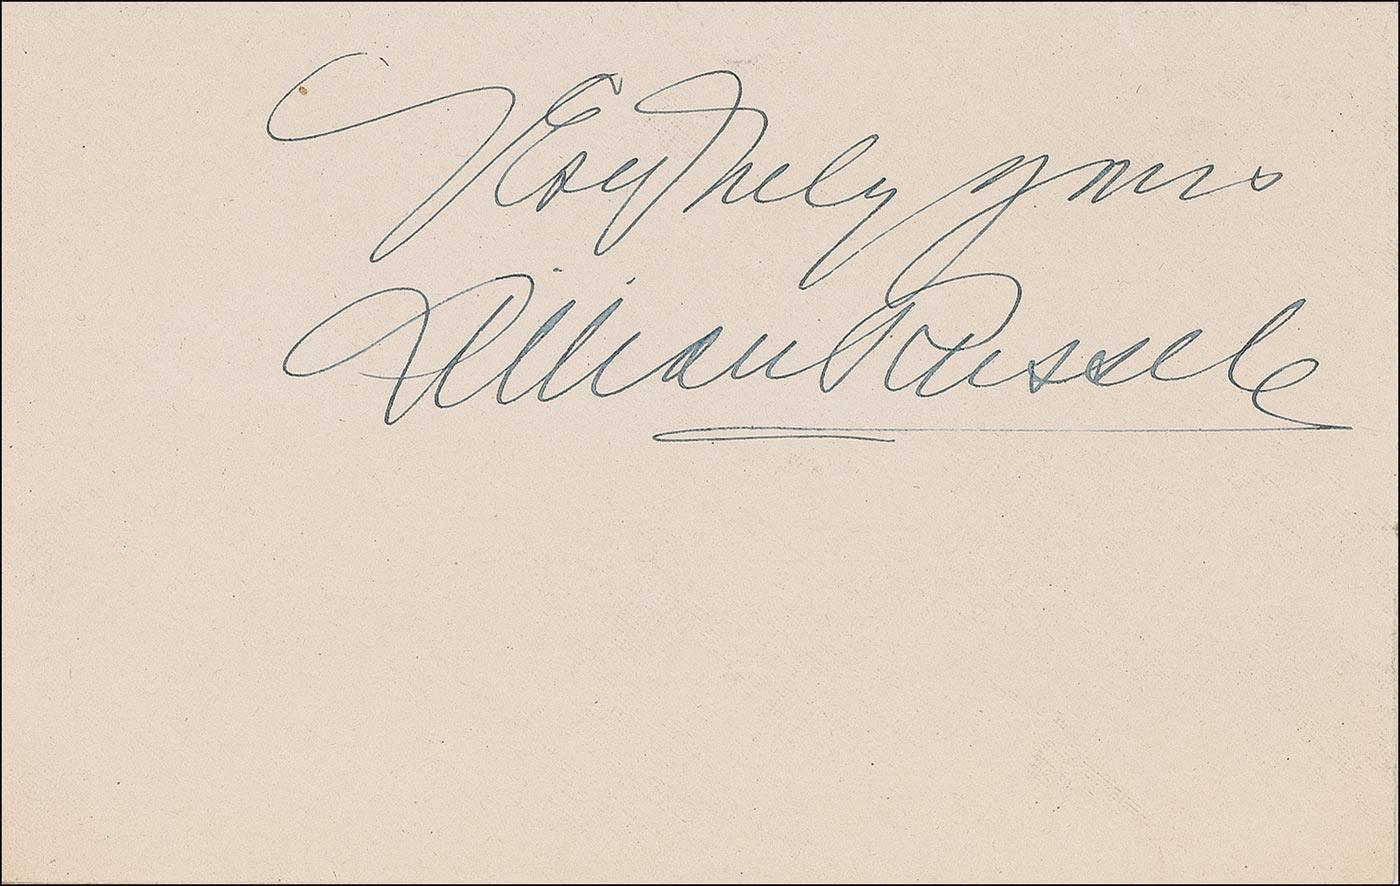 Very Truly yours
Lillian Russell